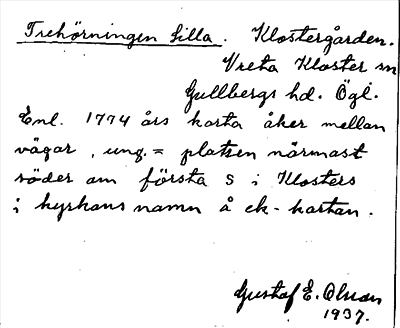 Trehörningen lilla. Klostergården.
Vreta Kloster sn
Gullbergs hd. Ögl.
Enl. 1774 års karta åker mellan
vägar, ung. = platsen närmast
söder om första s i Klosters
i kyrkans namn å ek-kartan.
Gustaf E. Olsson
1937.